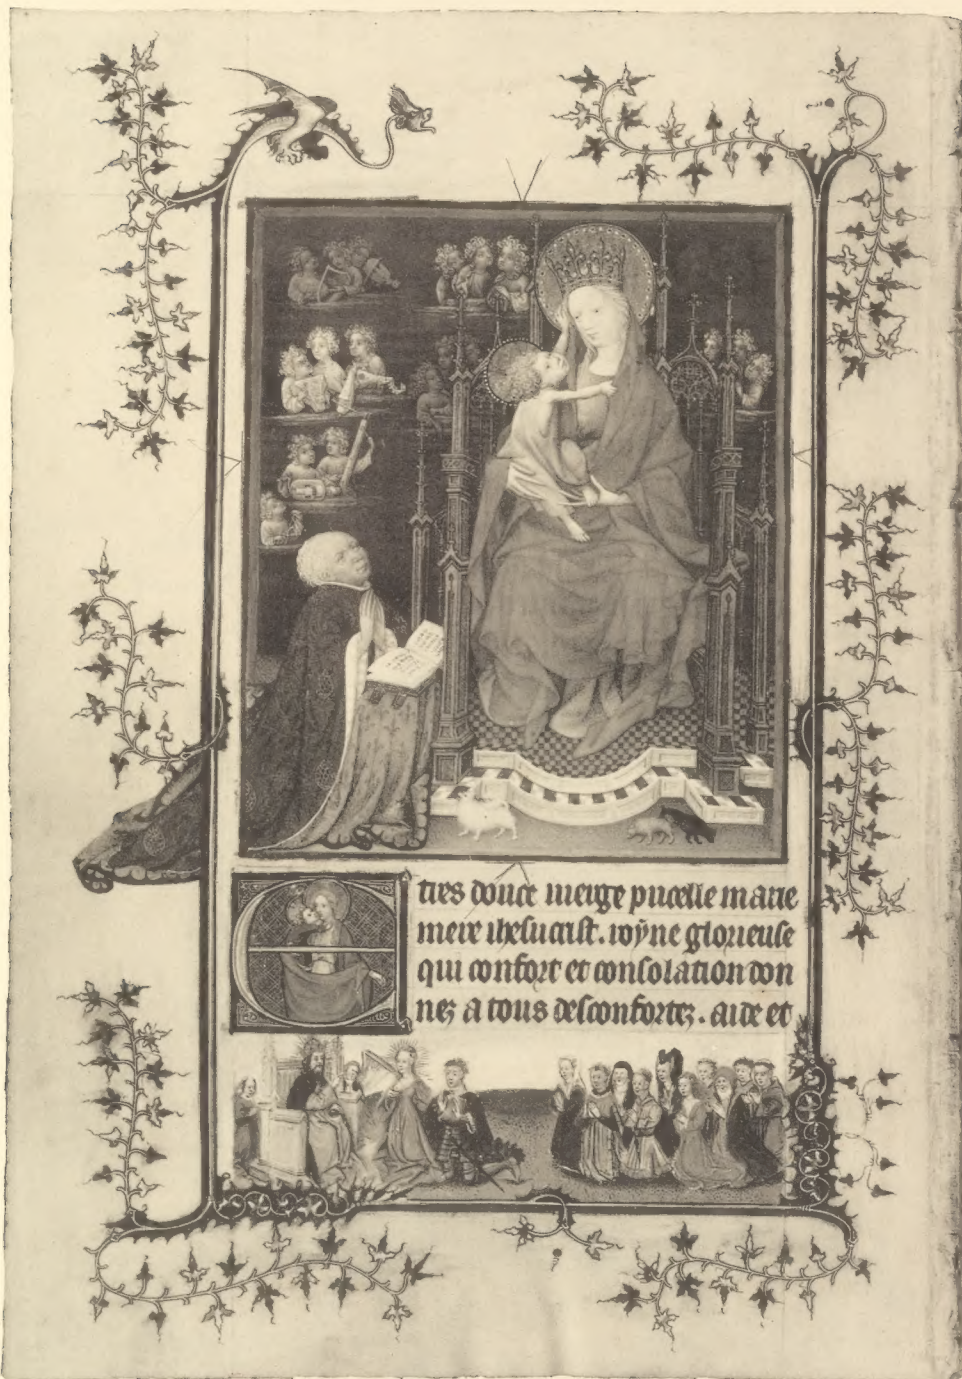 E tres douce uierge pucelle marie
mere ihesucrist. roÿne glorieuse
qui confort et consolation don
nez a tous desconfortez. aide et